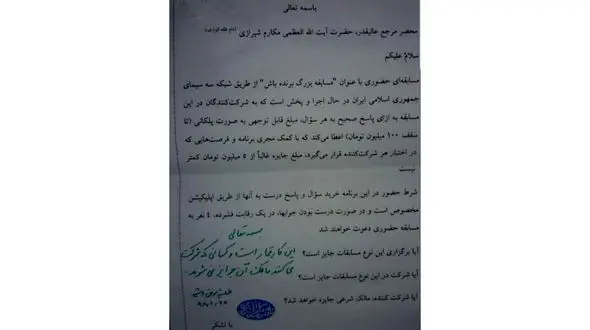 باسمه تعالی
محضر مرجع عالیقدر، حضرت آیت الله العظمی مکارم شیرازی (دام ظله الوارف)
سلامٌ علیکم
مسابقه‌ای حضوری با عنوان "مسابقه بزرگ برنده باش" از طریق شبکه سه سیمای
جمهوری اسلامی ایران در حال اجرا و پخش است که به شرکت‌کنندگان در این
مسابقه به ازای پاسخ صحیح به هر سؤال، مبلغ قابل توجهی به صورت پلکانی (تا
سقف ۱۰۰ میلیون تومان) اعطا می‌کند که با کمک مجری برنامه و فرصت‌هایی که
در اختیار هر شرکت‌کننده قرار می‌گیرد، مبلغ جایزه غالباً از ۵ میلیون تومان کمتر
نیست
شرط حضور در این برنامه خرید سؤال و پاسخ درست به آنها از طریق اپلیکیشن
مخصوص است و در صورت درست بودن جوابها، در یک رقابت فشرده، ٤ نفر به
مسابقه حضوری دعوت خواهند شد
بسمه تعالی
آیا برگزاری این نوع مسابقات جایز است؟
این کار قمار است و کسانی که شرکت
آیا شرکت در این نوع مسابقات جایز است؟
می کنند مالک آن جوایز نمی شوند.
آیا شرکت کننده، مالک شرعی جایزه خواهد شد؟
با تشکر